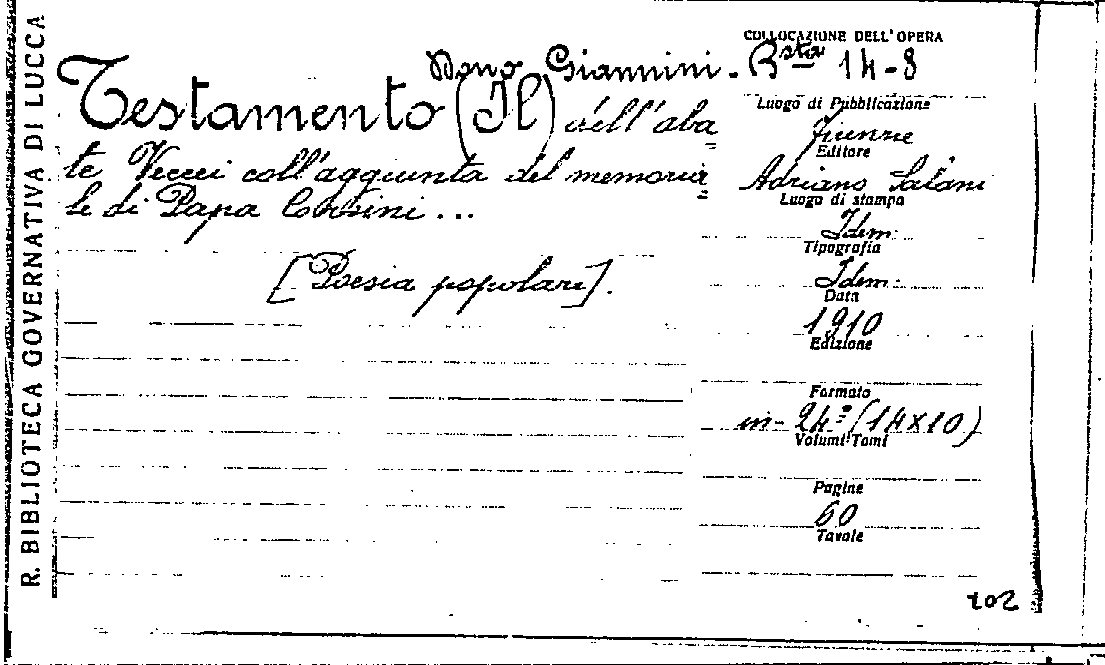 R. BIBLIOTECA GOVERNATIVA DI LUCCA
COLLOCAZIONE DELL'OPERA
Dono Giannini - Bsta 14-8
Testamento (Il) dell'aba=
te Veccei coll'aggiunta del memoria=
le di Papa Corsini...
[Poesia popolare].
Luogo di Pubblicazione
Firenze
Editore
Adriano Salani
Luogo di stampa
Idem.
Tipografia
Idem.
Data
1910
Edizione
Formato
in-24º (14x10)
Volumi-Tomi
Pagine
60
Tavole
102